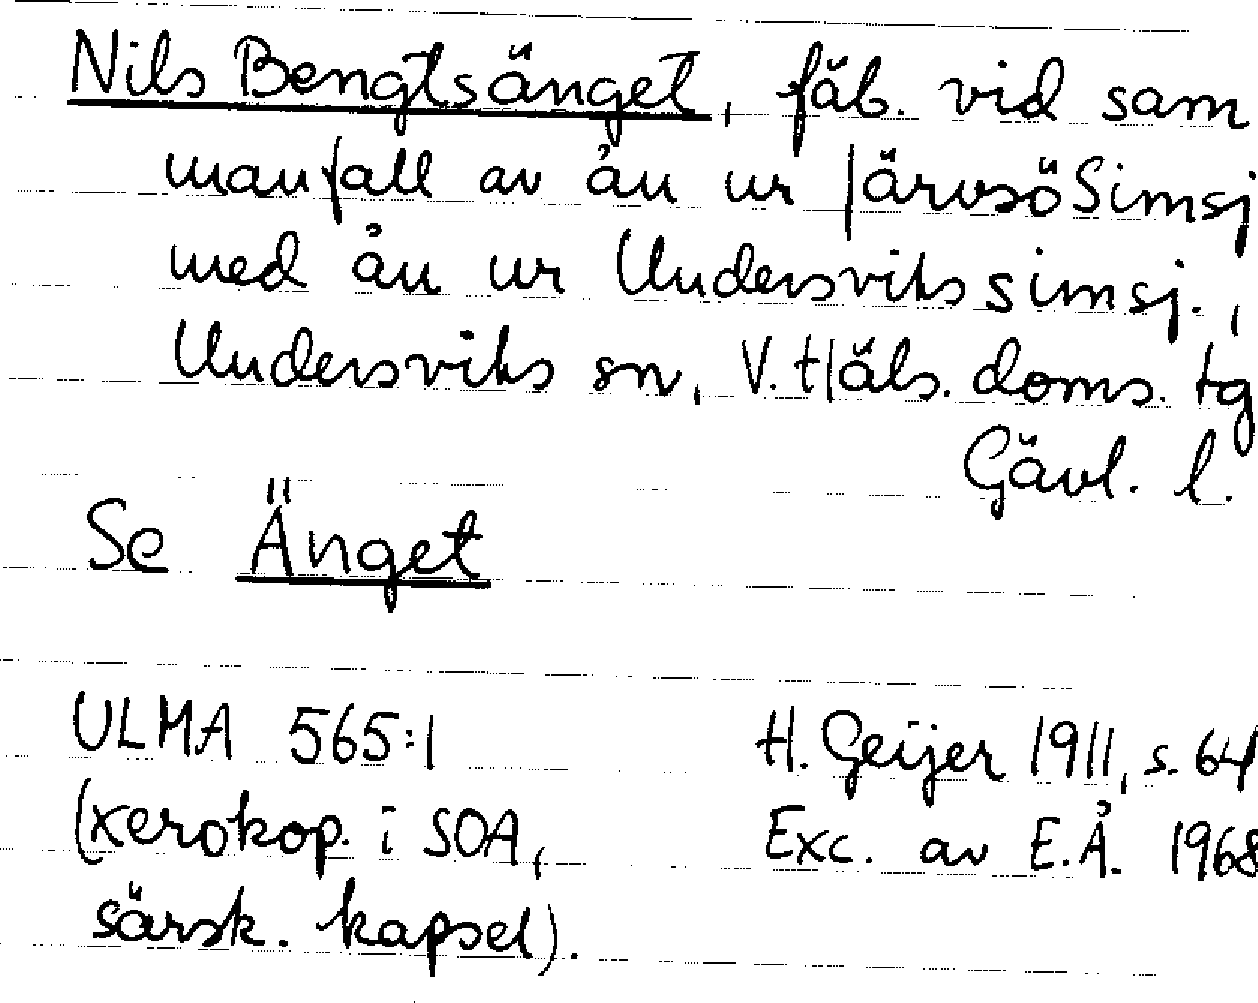 Nils Bengtsänget, fäb. vid sam
manfall av ån ur JärvsöSimsj
med ån ur Undersvikssimsj.,
Undersviks sn, V. Häls. doms. tg
Gävl. l.
Se Änget
ULMA 565:1 H. Geijer 1911, s. 64
(xerokop. i SOA, Exc. av E.Å. 1968
särsk. kapsel).